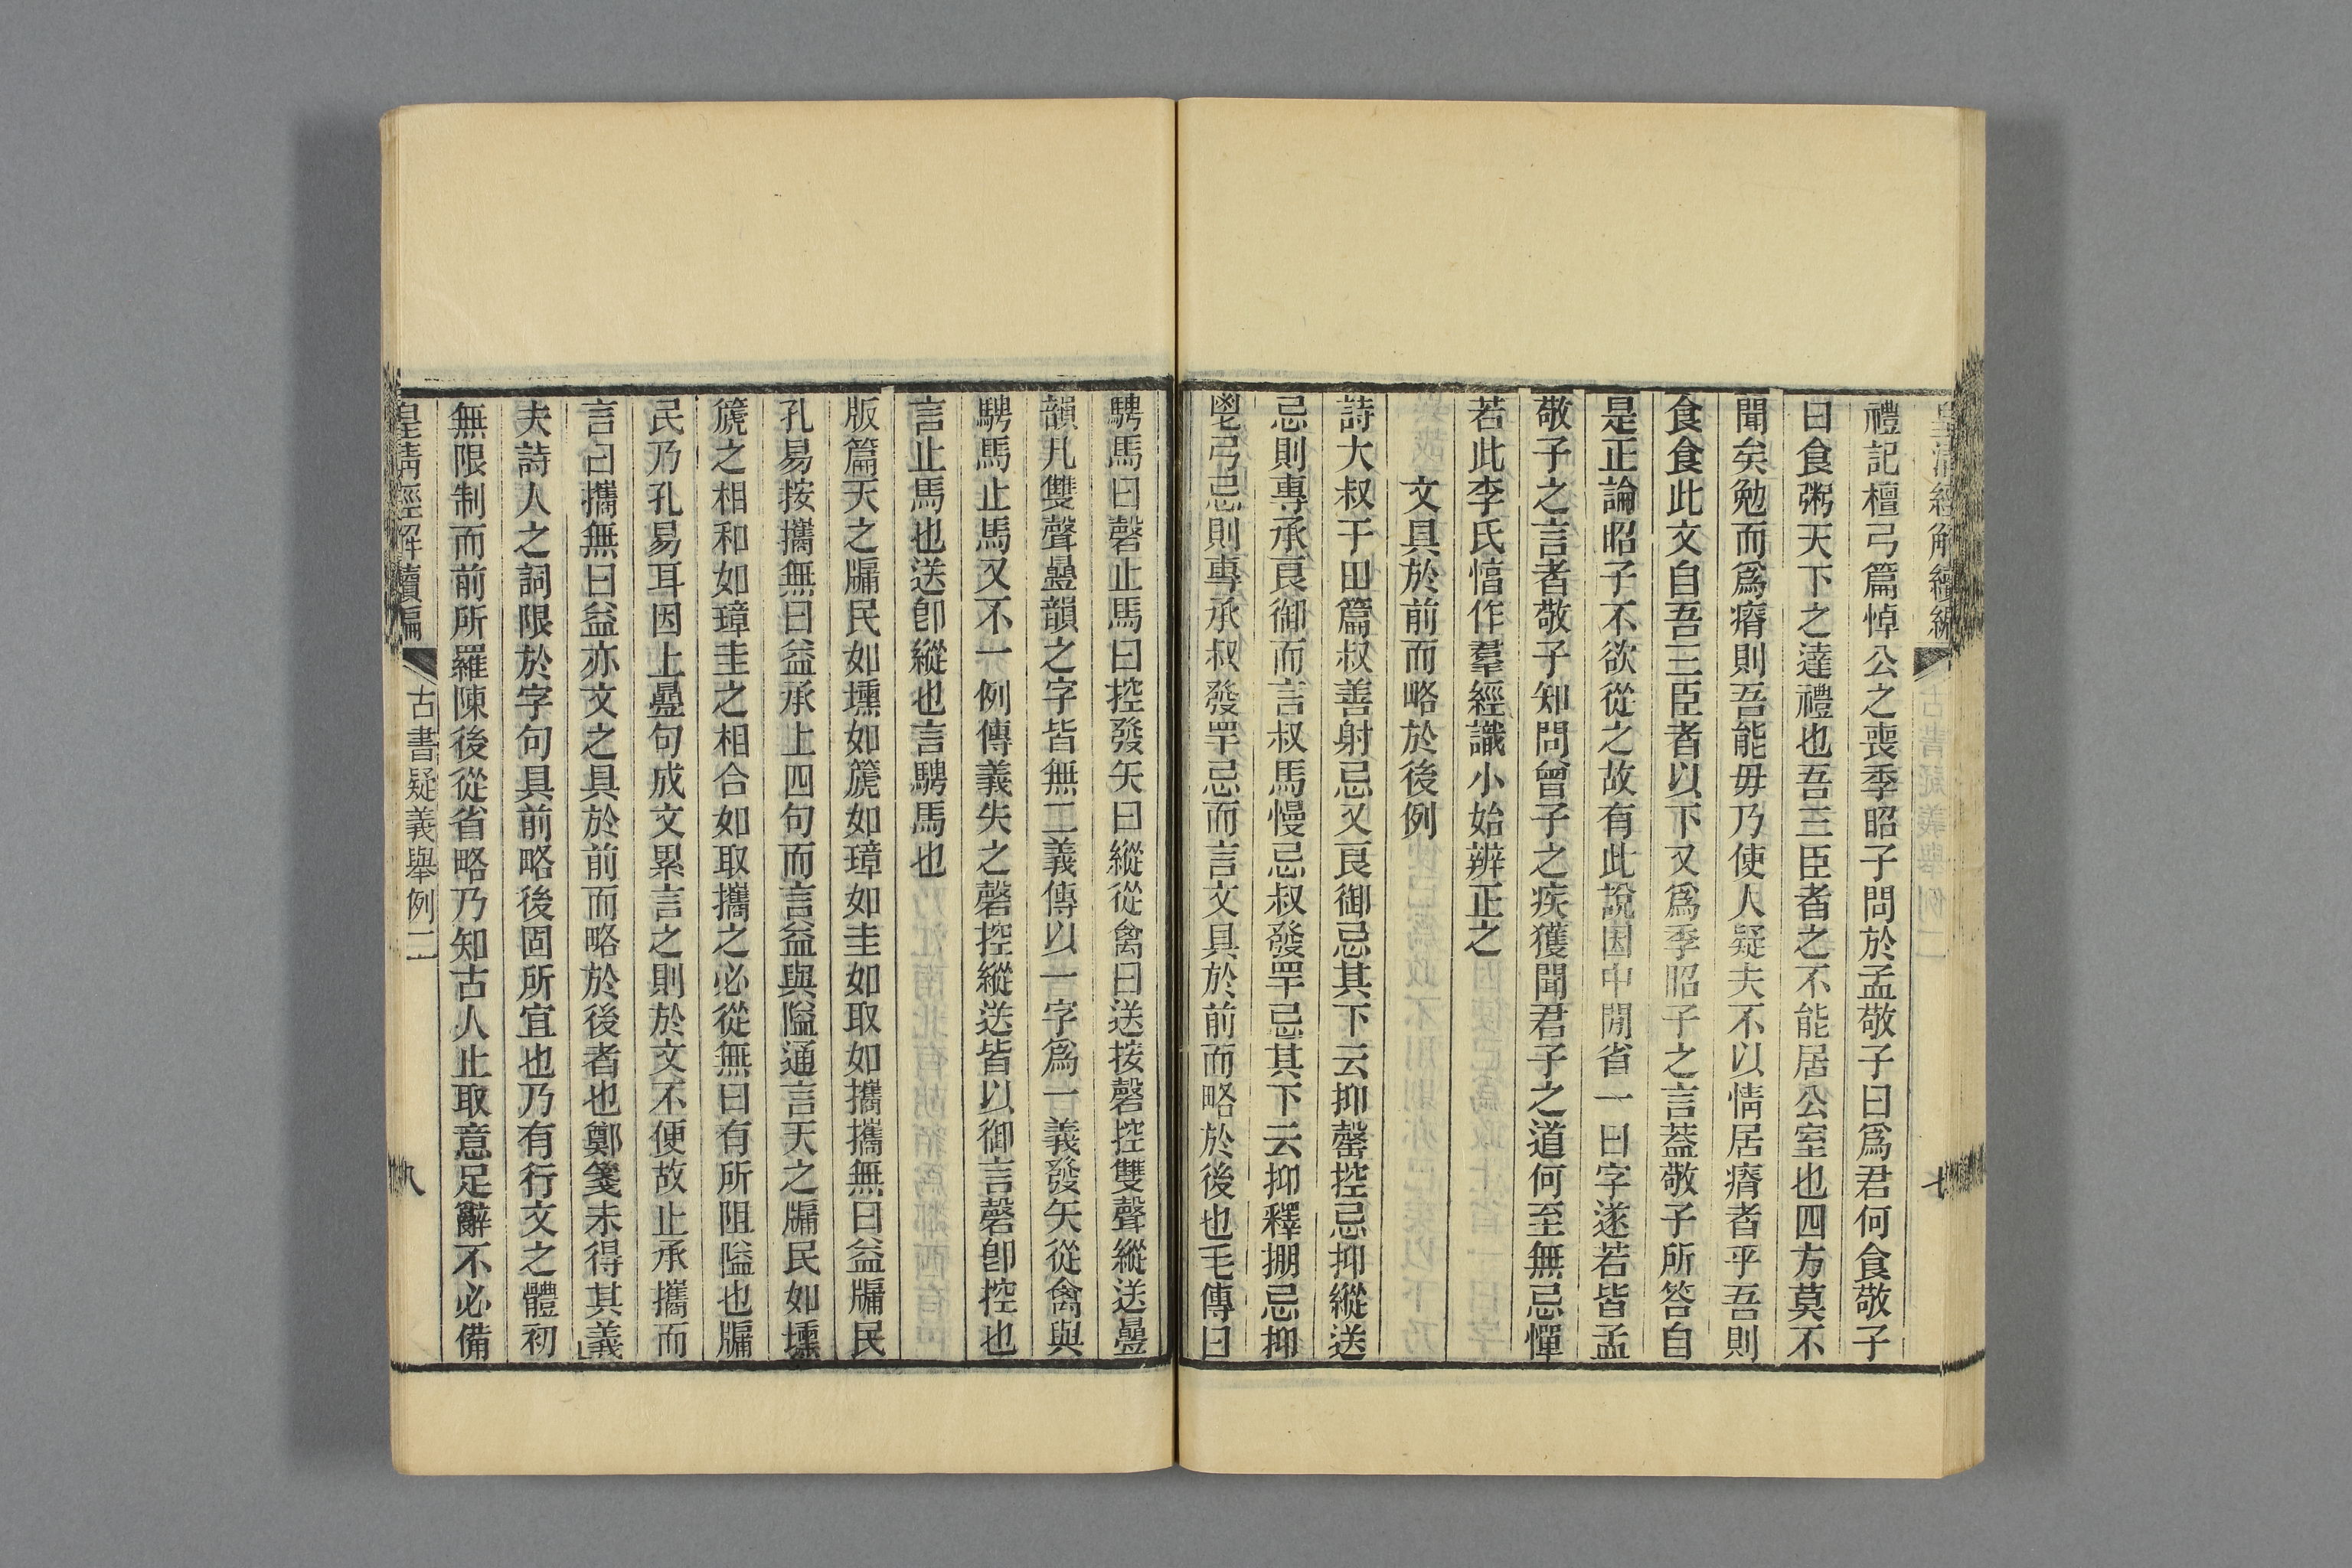 皇清經解續編
古書疑義舉例二
七
禮記檀弓篇悼公之喪季昭子問於孟敬子曰爲君何食敬子
曰食粥天下之達禮也吾三臣者之不能居公室也四方莫不
聞矣勉而爲瘠則吾能毋乃使人疑夫不以情居瘠者乎吾則
食食此文自吾三臣者以下又爲季昭子之言蓋敬子所答自
是正論昭子不欲從之故有此說因中閒省一曰字遂若皆孟
敬子之言者敬子知問曾子之疾獲聞君子之道何至無忌憚
若此李氏惇作羣經識小始辨正之
文具於前而略於後例
詩大叔于田篇叔善射忌又良御忌其下云抑罄控忌抑縱送
忌則專承良御而言叔馬慢忌叔發罕忌其下云抑釋掤忌抑
鬯弓忌則專承叔發罕忌而言文具於前而略於後也毛傳曰
騁馬曰磬止馬曰控發矢曰縱從禽曰送按磬控雙聲縱送疊
韻凡雙聲疊韻之字皆無二義傳以一字爲一義發矢從禽與
騁馬止馬又不一例傳義失之磬控縱送皆以御言磬卽控也
言止馬也送卽縱也言騁馬也
版篇天之牖民如壎如篪如璋如圭如取如攜攜無曰益牖民
孔易按攜無曰益承上四句而言益與隘通言天之牖民如壎
篪之相和如璋圭之相合如取攜之必從無曰有所阻隘也牖
民乃孔易耳因上疊句成文累言之則於文不便故止承攜而
言曰攜無曰益亦文之具於前而略於後者也鄭箋未得其義
夫詩人之詞限於字句具前略後固所宜也乃有行文之體初
無限制而前所羅陳後從省略乃知古人止取意足辭不必備
皇清經解續編
古書疑義舉例二
八